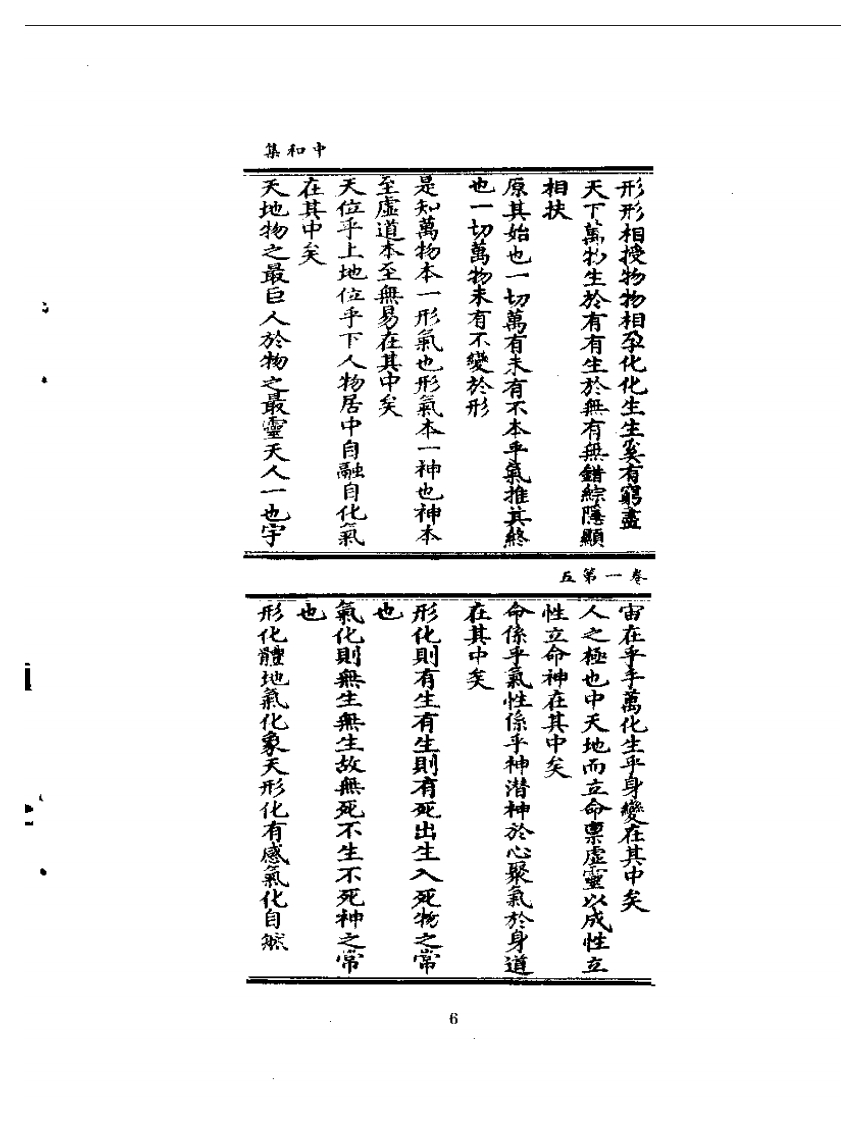 中和集
形形相授物物相孕化化生生奚有窮盡
天下萬物生於有有生於無有無錯綜隱顯
相扶
原其始也一切萬有未有不本乎氣推其終
也一切萬物未有不變於形
是知萬物本一形氣也形氣本一神也神本
至虛道本至無易在其中矣
天位乎上地位乎下人物居中自融自化氣
在其中矣
天地物之最巨人於物之最靈天人一也宇
卷一第五
宙在乎手萬化生乎身變在其中矣
人之極也中天地而立命稟虛靈以成性立
性立命神在其中矣
命係乎氣性係乎神潛神於心聚氣於身道
在其中矣
形化則有生有生則有死出生入死物之常
也
氣化則無生無生故無死不生不死神之常
也
形化體地氣化象天形化有感氣化自然
6